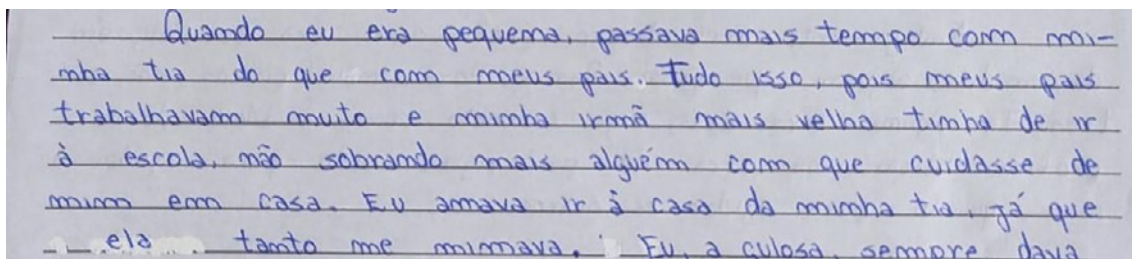 Quando eu era pequena, passava mais tempo com mi-
nha tia do que com meus pais. Tudo isso, pois meus pais
trabalhavam muito e minha irmã mais velha tinha de ir
à escola, não sobrando mais alguém com que cuidasse de
mim em casa. Eu amava ir à casa da minha tia, já que
ela tanto me mimava. Eu, a gulosa, sempre dava